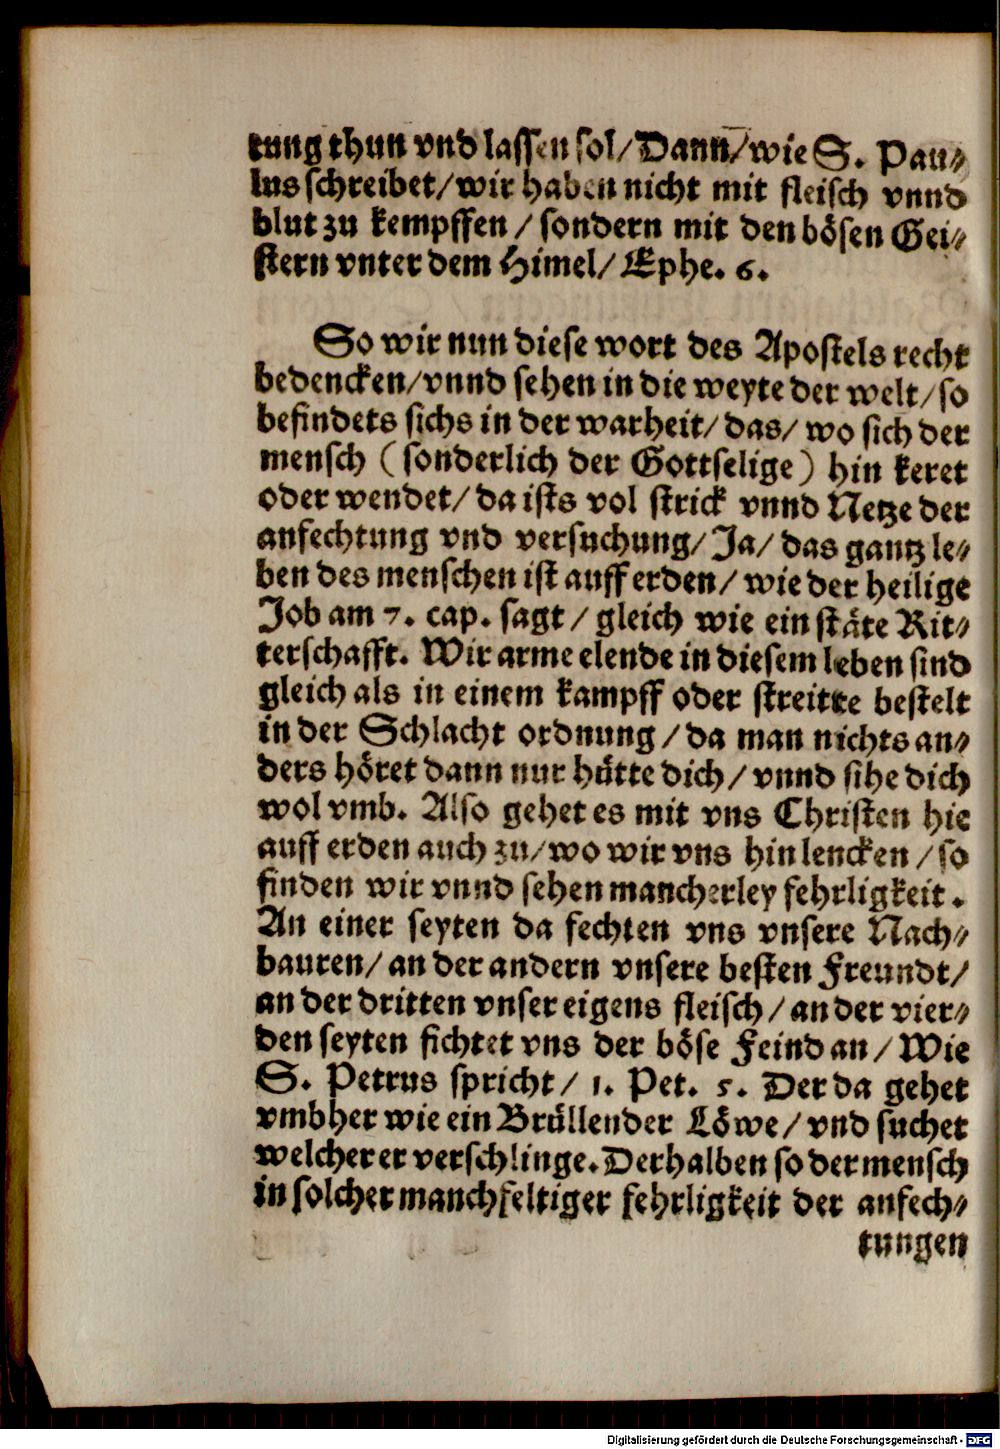 tung thun vnd lassen sol/Dann/wie S. Pau⸗
lus schreibet/wir haben nicht mit fleisch vnnd
blut zu kempffen / sondern mit den bösen Gei⸗
stern vnter dem Himel/ Ephe. 6.
So wir nun diese wort des Apostels recht
bedencken/vnnd sehen in die weyte der welt/so
befindets sichs in der warheit/ das/ wo sich der
mensch ( sonderlich der Gottselige) hin keret
oder wendet/ da ists vol strick vnnd Netze der
anfechtung vnd versuchung/ Ja/ das gantz le⸗
ben des menschen ist auff erden/ wie der heilige
Job am 7. cap. sagt / gleich wie ein stäte Rit⸗
terschafft. Wir arme elende in diesem leben sind
gleich als in einem kampff oder streitte bestelt
in der Schlacht ordnung / da man nichts an⸗
ders höret dann nur hütte dich/ vnnd sihe dich
wol vmb. Also gehet es mit vns Christen hie
auff erden auch zu/wo wir vns hin lencken /so
finden wir vnnd sehen mancherley fehrligkeit.
An einer seyten da fechten vns vnsere Nach⸗
bauren/ an der andern vnsere besten Freundt/
an der dritten vnser eigens fleisch / an der vier⸗
den seyten fichtet vns der böse Feind an/ Wie
S. Petrus spricht/ 1. Pet. 5. Der da gehet
vmbher wie ein Brüllender Löwe/ vnd suchet
welcher er verschlinge. Derhalben so der mensch
in solcher manchfeltiger fehrligkeit der anfech⸗
tungen
Digitalisierung gefördert durch die Deutsche Forschungsgemeinschaft - DFG